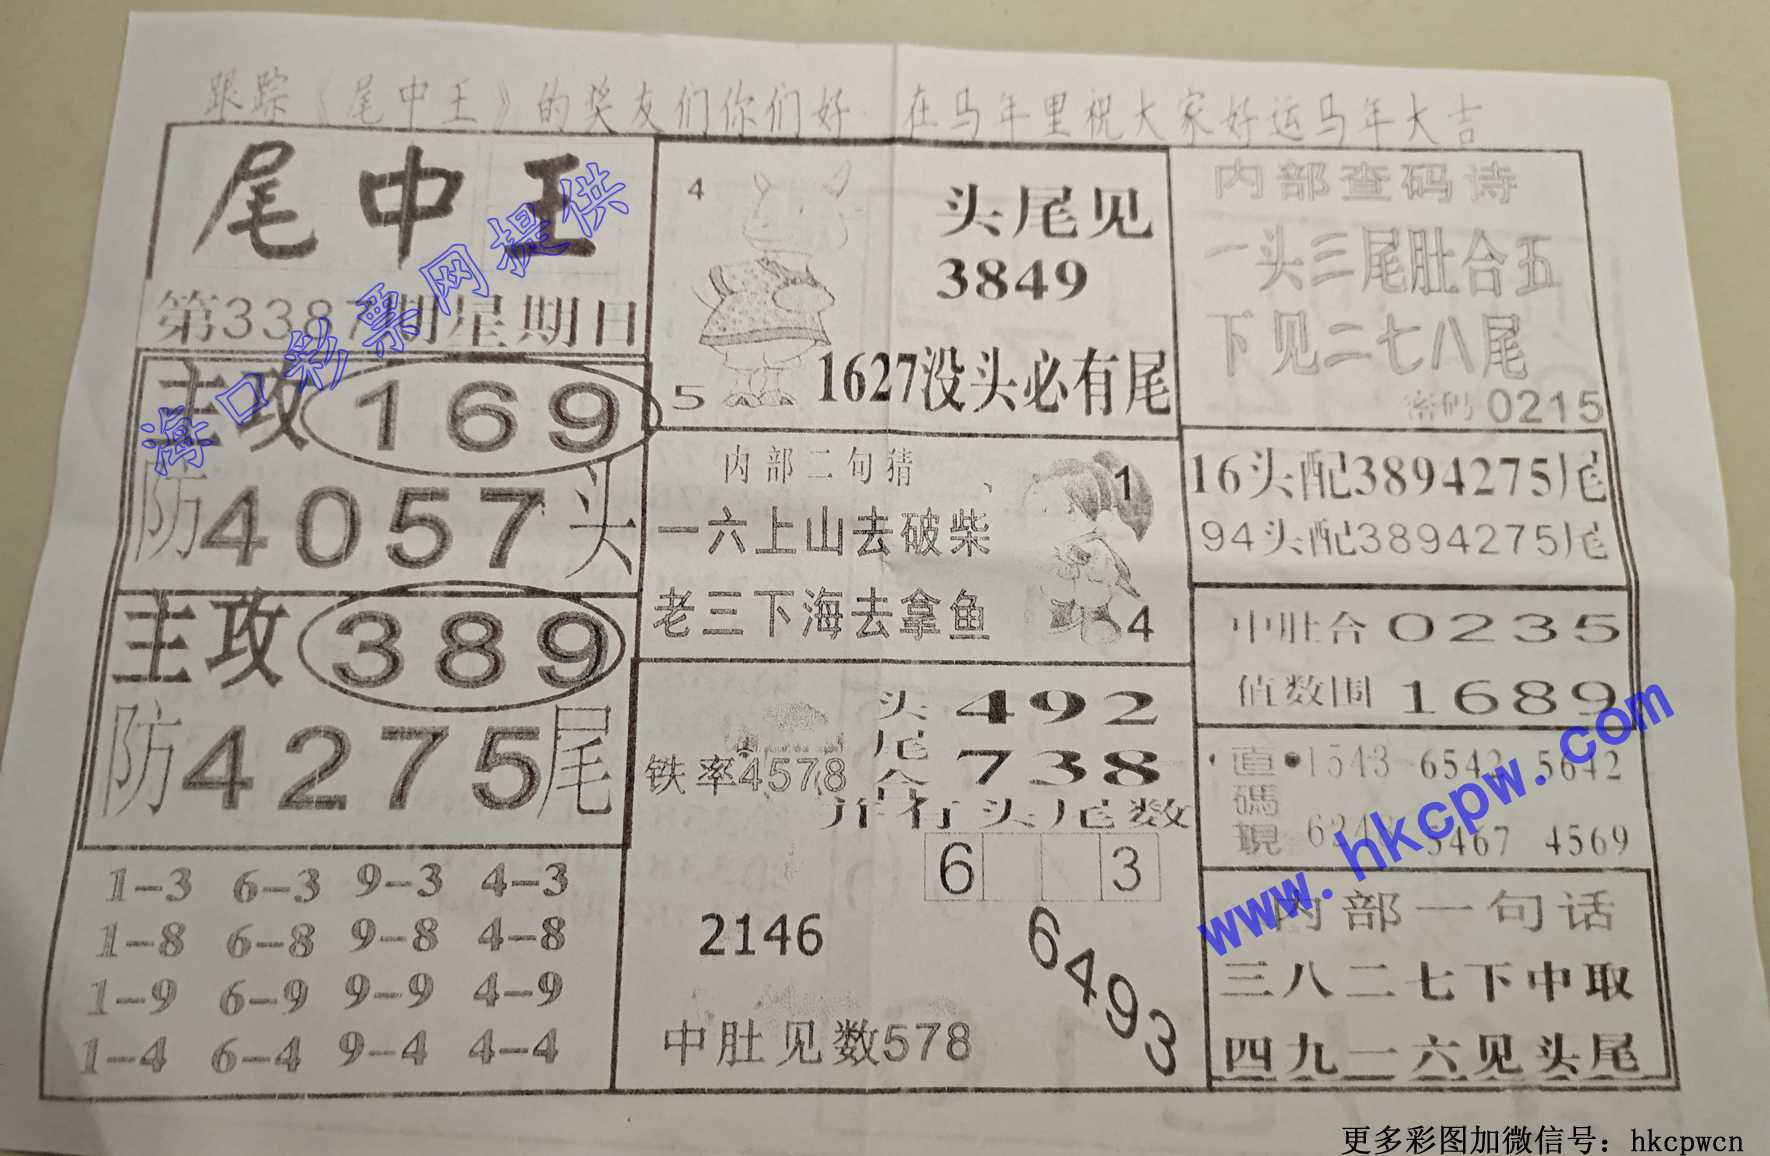 跟踪《尾中王》的奖友们你们好 在马年里祝大家好运马年大吉
尾中王
第3387期星期日
主攻169
防4057头
主攻389
防4275尾
1-3 6-3 9-3 4-3
1-8 6-8 9-8 4-8
1-9 6-9 9-9 4-9
1-4 6-4 9-4 4-4
4
头尾见
3849
5
1627没头必有尾
内部二句猜
1
一六上山去破柴
老三下海去拿鱼
4
头492
尾
合738
铁率4578
并行头尾数
6 3
2146
64993
中肚见数578
内部查码诗
一头三尾肚合五
下见二七八尾
密码0215
16头配3894275尾
94头配3894275尾
中肚合0235
值数围1689
直碼現
1543 6542 5642
5467 4569
内部一句话
三八二七下中取
四九一六见头尾
海口彩票网提供
www.hkcpw.com
更多彩图加微信号：hkcpwcn